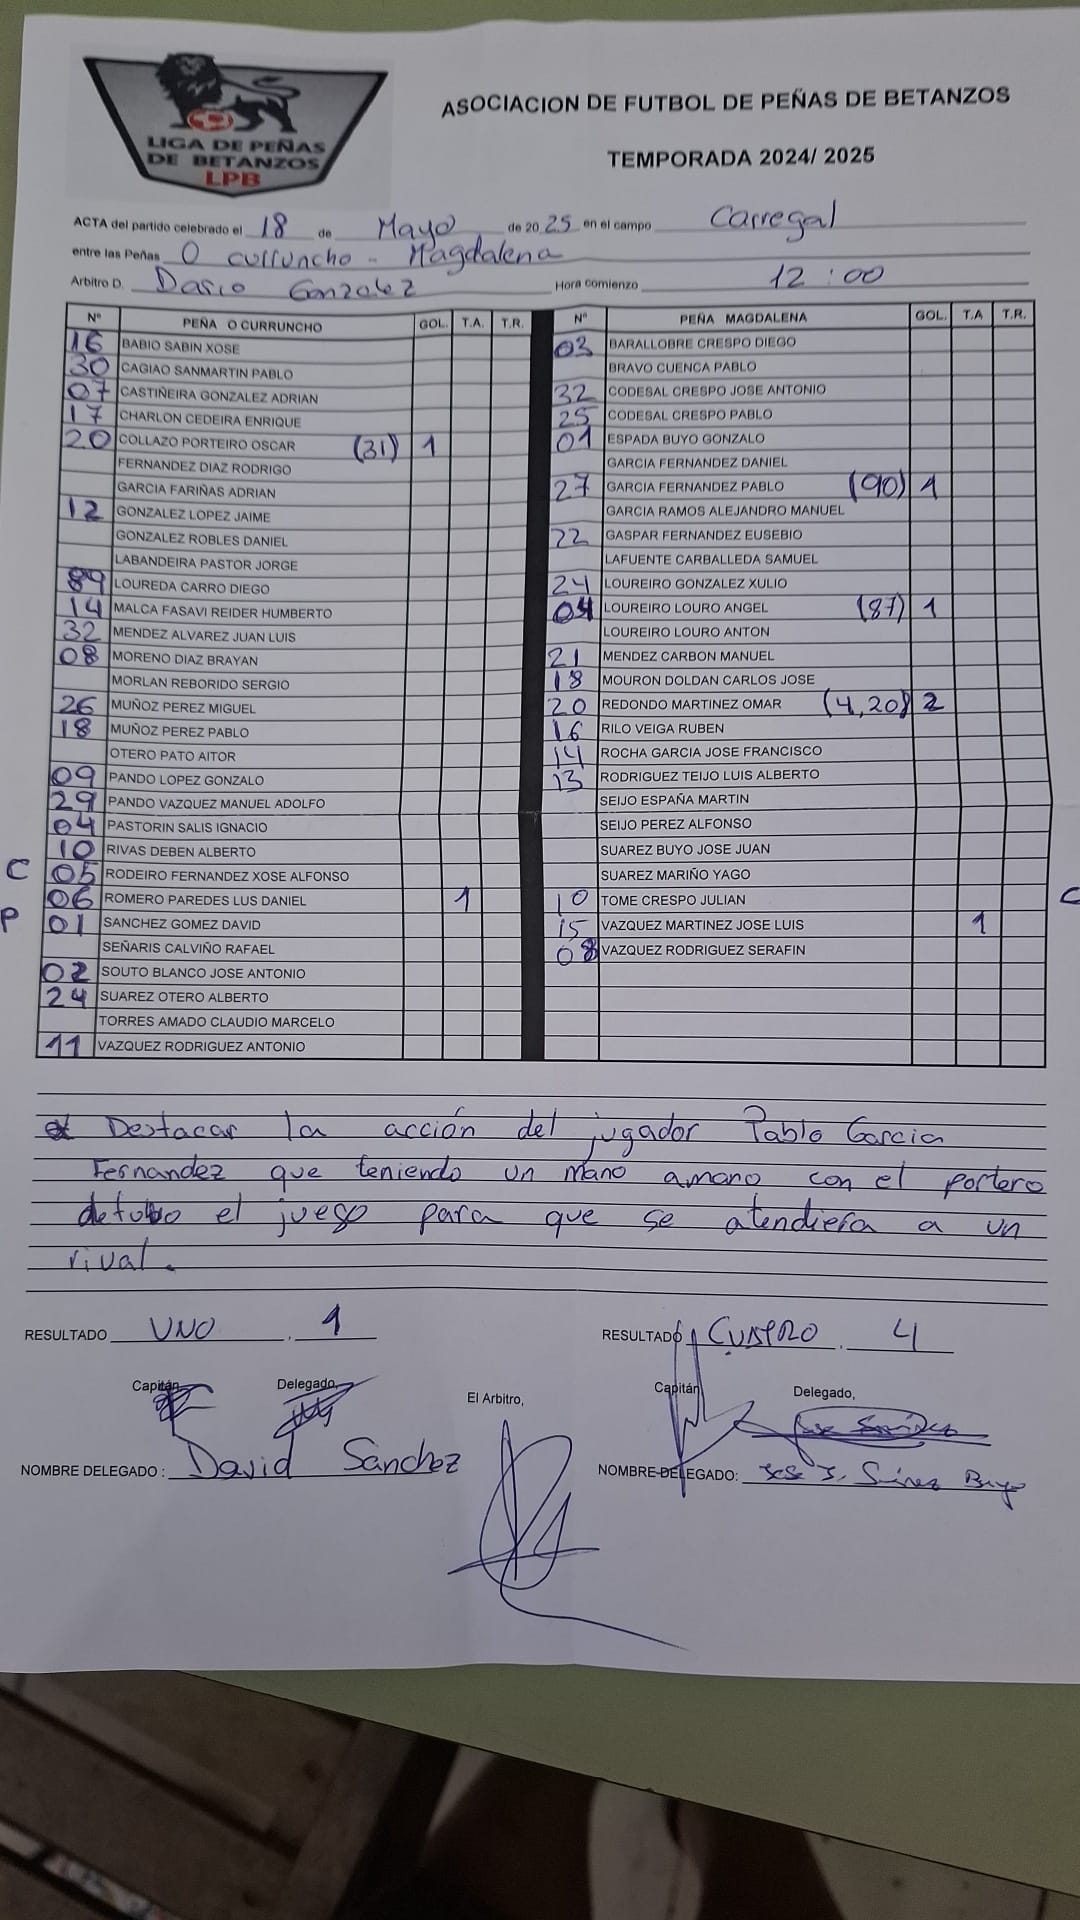 LIGA DE PEÑAS
DE BETANZOS
LPB
ASOCIACION DE FUTBOL DE PEÑAS DE BETANZOS
TEMPORADA 2024/ 2025
ACTA del partido celebrado el 18 de Mayo de 20 25 en el campo Carregal
entre las Peñas O curruncho - Magdalena
Arbitro D. Dario Gonzalez Hora comienzo 12:00
Nº PEÑA O CURRUNCHO GOL. T.A. T.R. Nº PEÑA MAGDALENA GOL. T.A T.R.
16 BABIO SABIN XOSE 03 BARALLOBRE CRESPO DIEGO
30 CAGIAO SANMARTIN PABLO BRAVO CUENCA PABLO
07 CASTIÑEIRA GONZALEZ ADRIAN 32 CODESAL CRESPO JOSE ANTONIO
17 CHARLON CEDEIRA ENRIQUE 25 CODESAL CRESPO PABLO
20 COLLAZO PORTEIRO OSCAR (31) 1 01 ESPADA BUYO GONZALO
FERNANDEZ DIAZ RODRIGO GARCIA FERNANDEZ DANIEL
GARCIA FARIÑAS ADRIAN 27 GARCIA FERNANDEZ PABLO (90) 1
12 GONZALEZ LOPEZ JAIME GARCIA RAMOS ALEJANDRO MANUEL
GONZALEZ ROBLES DANIEL 22 GASPAR FERNANDEZ EUSEBIO
LABANDEIRA PASTOR JORGE LAFUENTE CARBALLEDA SAMUEL
89 LOUREDA CARRO DIEGO 24 LOUREIRO GONZALEZ XULIO
14 MALCA FASAVI REIDER HUMBERTO 04 LOUREIRO LOURO ANGEL (87) 1
32 MENDEZ ALVAREZ JUAN LUIS LOUREIRO LOURO ANTON
08 MORENO DIAZ BRAYAN 21 MENDEZ CARBON MANUEL
MORLAN REBORIDO SERGIO 18 MOURON DOLDAN CARLOS JOSE
26 MUÑOZ PEREZ MIGUEL 20 REDONDO MARTINEZ OMAR (4,20) 2
18 MUÑOZ PEREZ PABLO 16 RILO VEIGA RUBEN
OTERO PATO AITOR 14 ROCHA GARCIA JOSE FRANCISCO
09 PANDO LOPEZ GONZALO 13 RODRIGUEZ TEIJO LUIS ALBERTO
29 PANDO VAZQUEZ MANUEL ADOLFO SEIJO ESPAÑA MARTIN
04 PASTORIN SALIS IGNACIO SEIJO PEREZ ALFONSO
10 RIVAS DEBEN ALBERTO SUAREZ BUYO JOSE JUAN
C 05 RODEIRO FERNANDEZ XOSE ALFONSO SUAREZ MARIÑO YAGO
06 ROMERO PAREDES LUS DANIEL 1 10 TOME CRESPO JULIAN C
P 01 SANCHEZ GOMEZ DAVID 15 VAZQUEZ MARTINEZ JOSE LUIS 1
SEÑARIS CALVIÑO RAFAEL 08 VAZQUEZ RODRIGUEZ SERAFIN
02 SOUTO BLANCO JOSE ANTONIO
24 SUAREZ OTERO ALBERTO
TORRES AMADO CLAUDIO MARCELO
11 VAZQUEZ RODRIGUEZ ANTONIO
Destacar la acción del jugador Pablo Garcia
Fernandez que teniendo un mano a mano con el portero
detubo el juego para que se atendiera a un
rival.
RESULTADO UNO . 1 RESULTADO CUATRO . 4
Capitán Delegado, El Arbitro, Capitán Delegado,
NOMBRE DELEGADO : David Sanchez NOMBRE DELEGADO: Jose J. Suárez Buyo